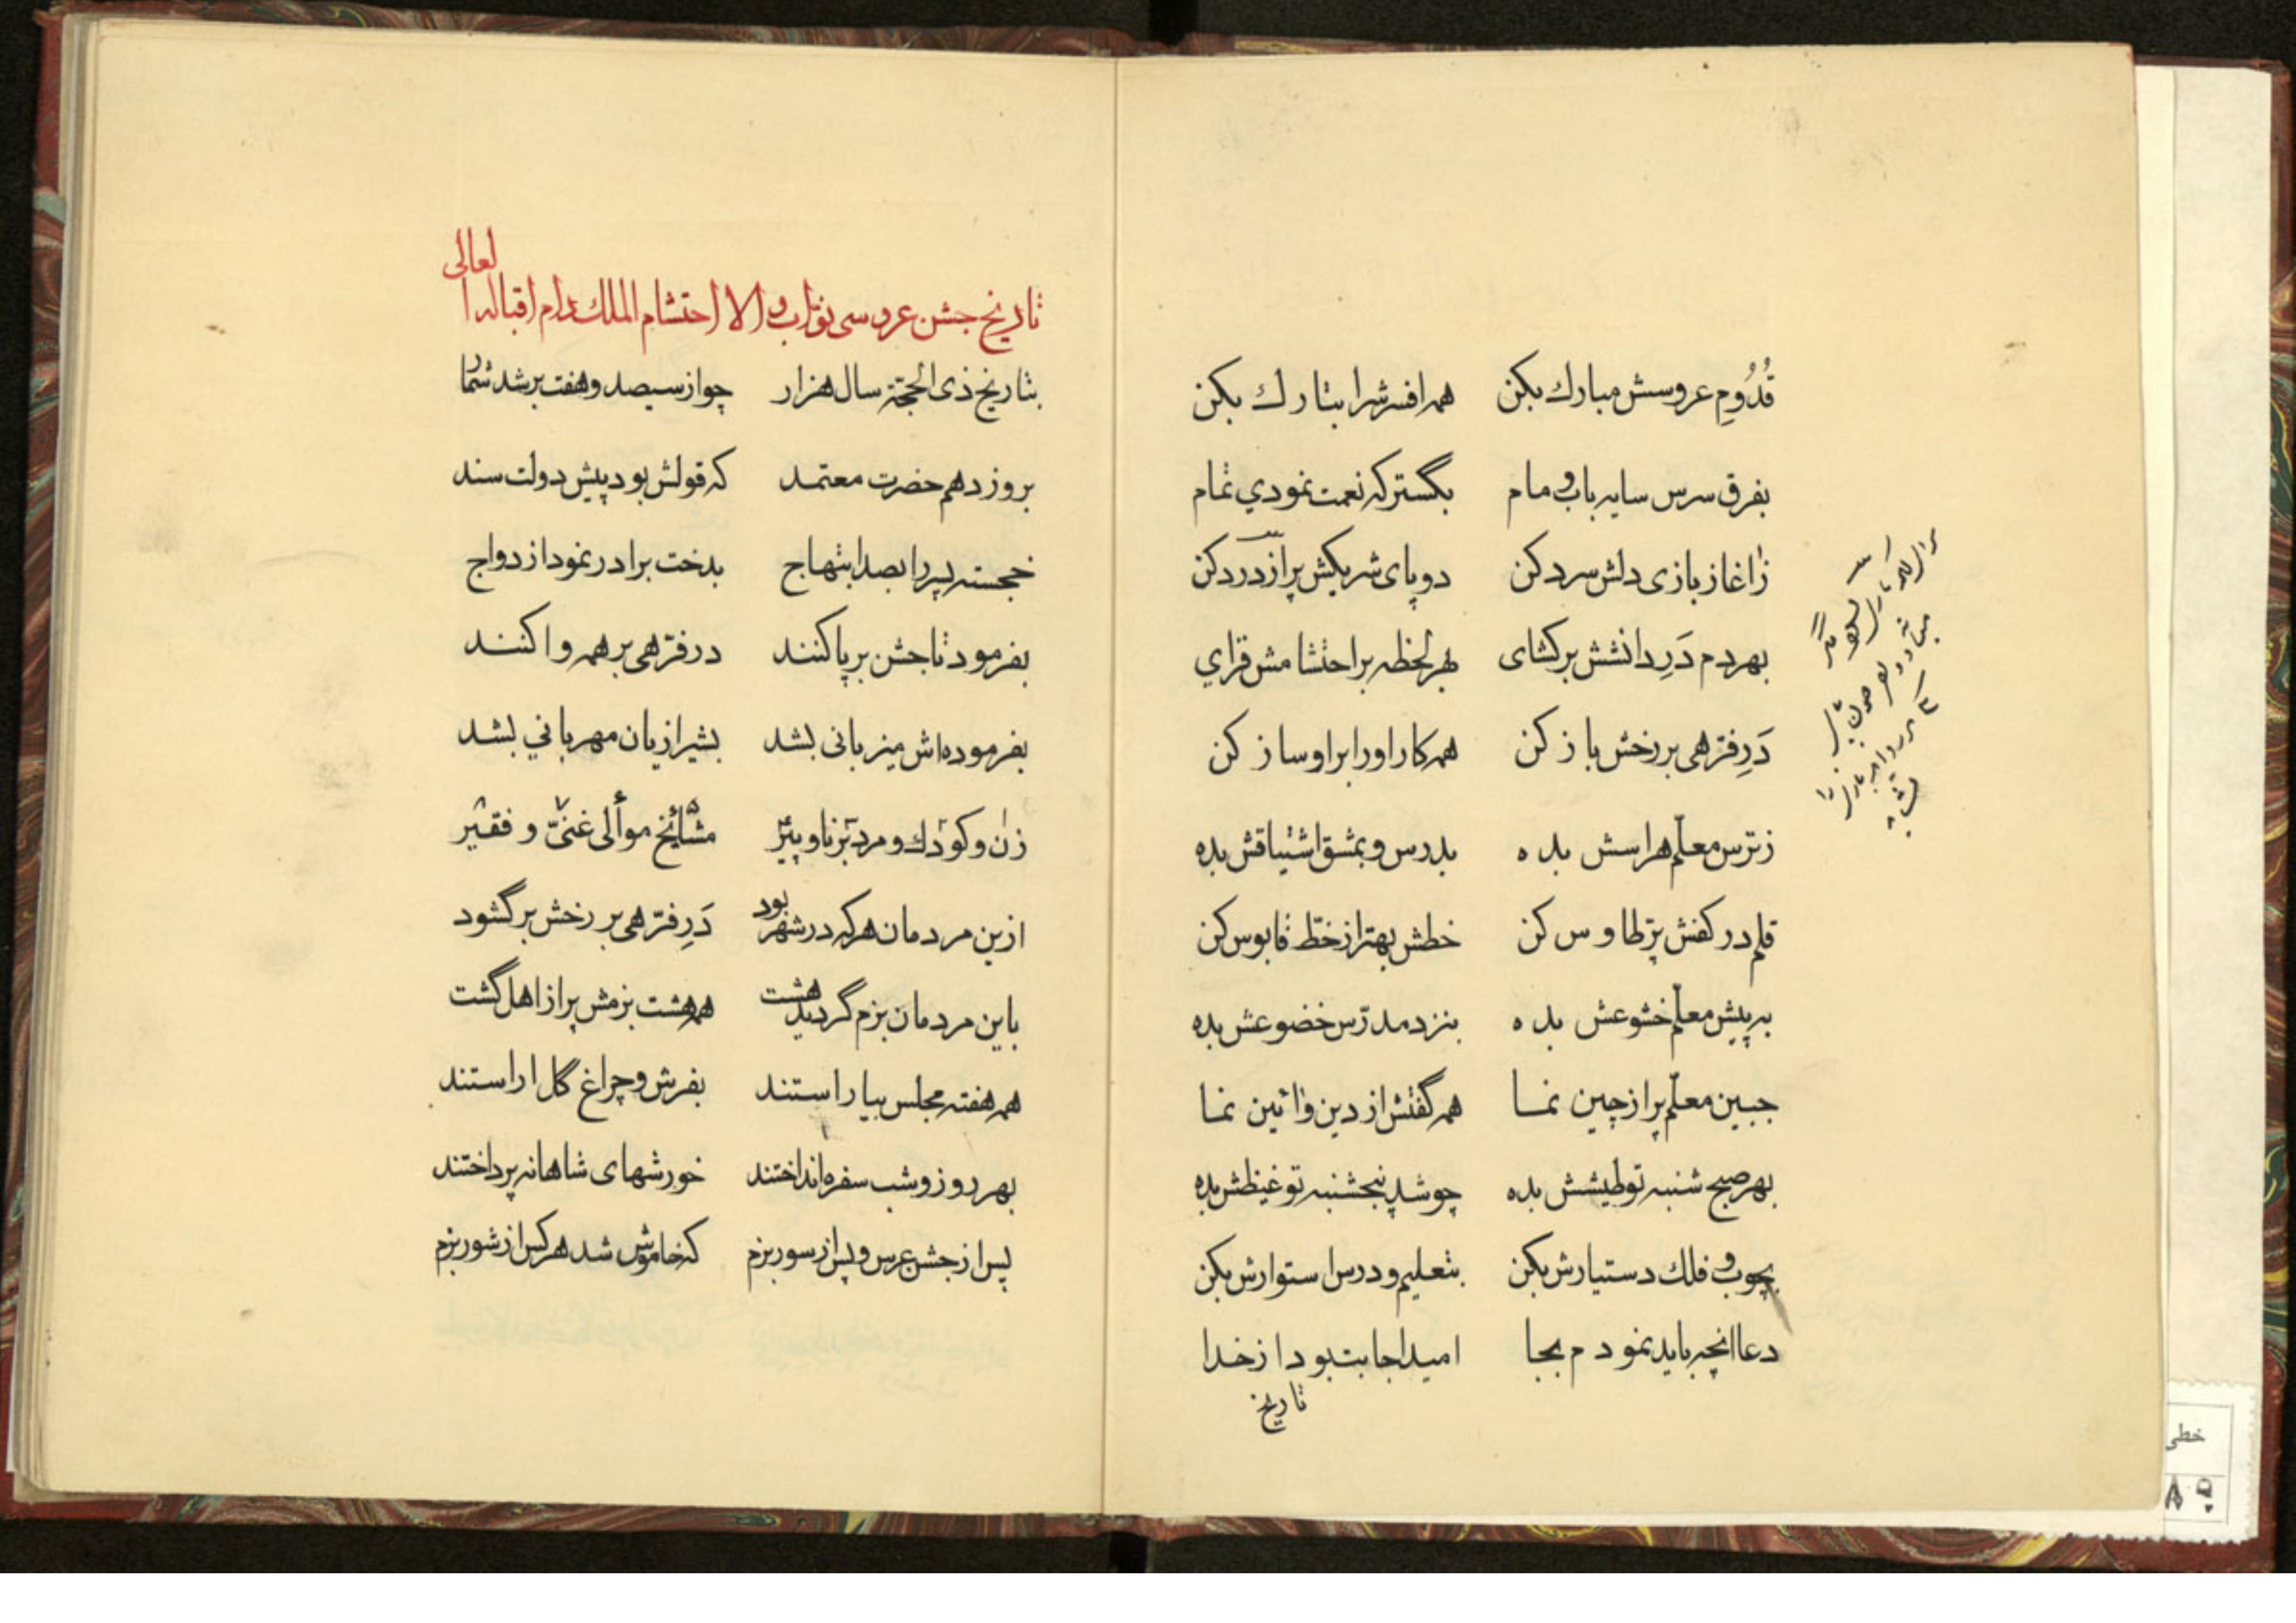 قُدُومِ عروسش مبارك بكن همه افسرش را بتارك بكن
بفرق سرس سايه باب و مام بگستر كه نعمت نمودي تمام
زاغاز بازى دلش سرد كن دو پاى شريكش پر از درد كن
بهر دم دَرِ دانشش بر كشاى بهر لحظه بر احتشامش فزاي
دَرِ فرّهى بر رخش باز كن همه كار او را بر او ساز كن
ز ترس معلّم هراسش بده بدرس و بمشق اشتياقش بده
قلم در كفش پرّ طاوس كن خطش بهتر از خطّ قابوس كن
به پيش معلّم خشوعش بده بنزد مدرّس خضوعش بده
جبين معلّم پر از چين نما همه گفتش از دين و ائين نما
بهر صبح شنبه تو طيشش بده چو شد پنجشنبه تو غيظش بده
بچوب و فلك دستيارش بكن بتعليم و درس استوارش بكن
دعا انچه بايد نمودم بجا اميد اجابت بود از خدا
تاريخ
تاريخ جشن عروسى نوّاب والا احتشام الملك دام اقباله العالى
بتاريخ ذى الحجّة سال هزار چو از سيصد و هفت بر شد شمار
بروز دهم حضرت معتمد كه قولش بود پيش دولت سند
خجسته پسر را بصد ابتهاج بدخت برادر نمود ازدواج
بفرمود تا جشن بر پا كنند در فرّهى بر همه وا كنند
بفرموده‌اش ميزبانى بشد بشيرازيان مهربانى بشد
زن و كودك و مرد برنا و پير مشائخ موالى غنىّ و فقير
ازين مردمان هر كه در شهر بود دَرِ فرّهى بر رخش بر گشود
باين مردمان بزم گرديد هشت همه هشت بزمش پر از اهل گشت
همه هفته مجلس بياراستند بفرش و چراغ گل اراستند
بهر روز و شب سفره انداختند خورشهاى شاهانه پرداختند
پس از جشن عرس و پس از سور بزم كه خاموش شد هر كس از شور بزم
خطى